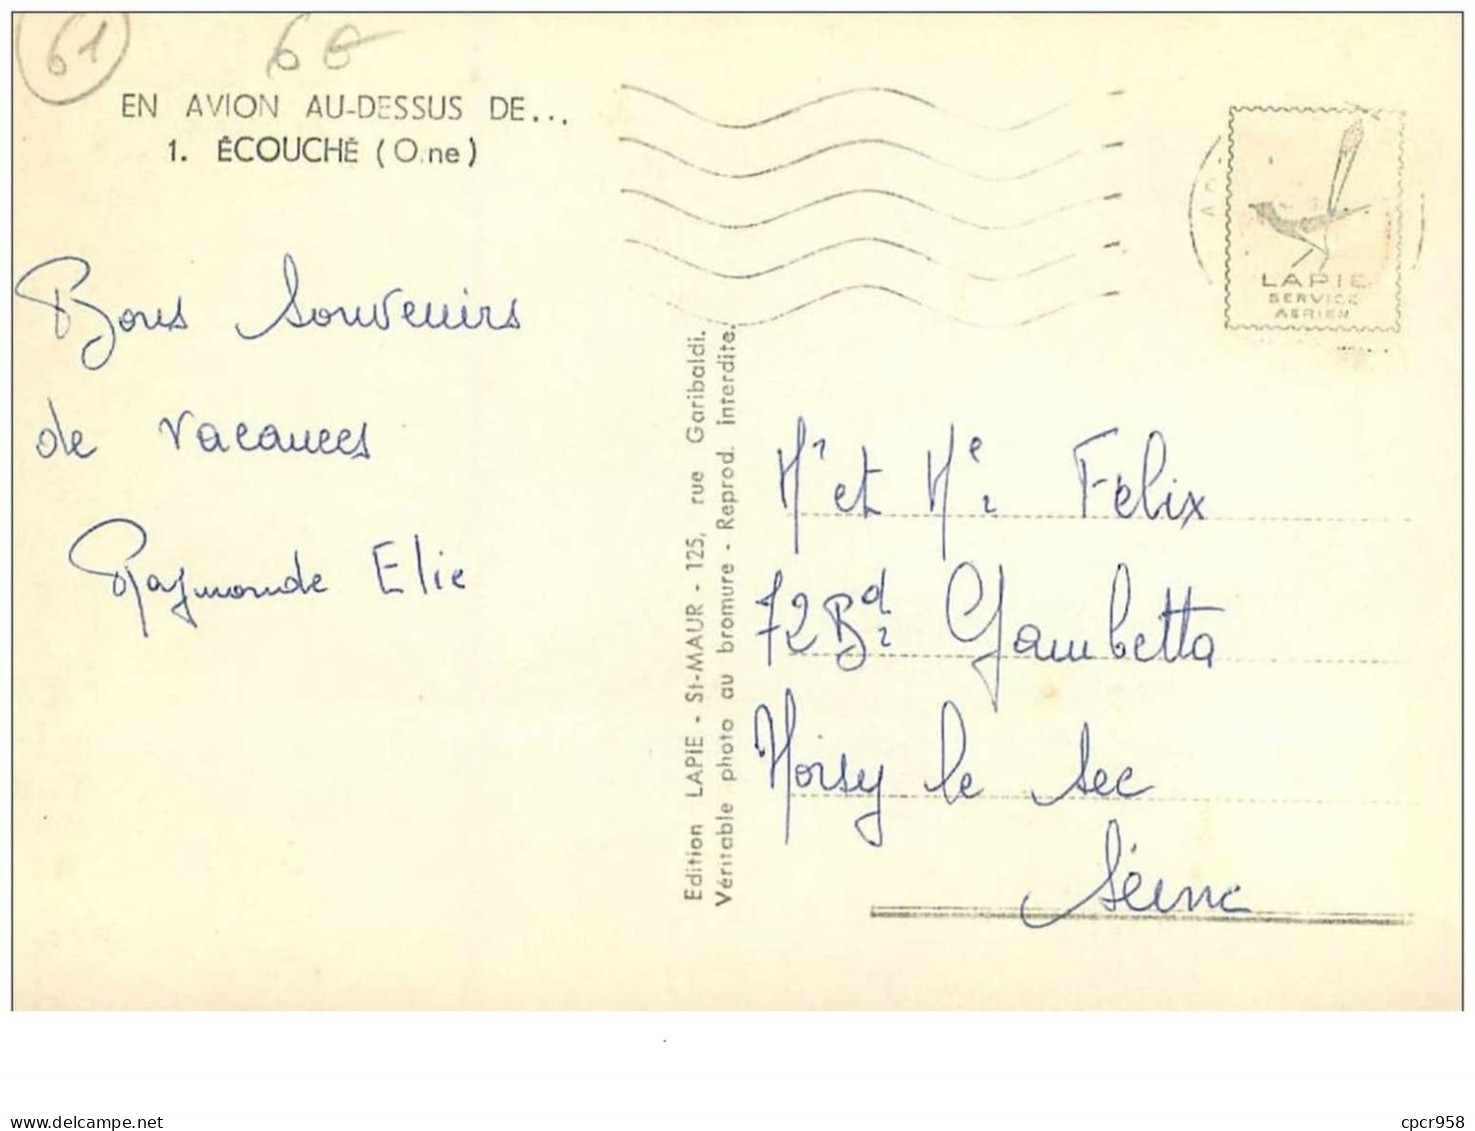 61
6€
EN AVION AU-DESSUS DE...
1. ÉCOUCHÉ (O.ne)
LAPIE
SERVICE
AERIEN
Bons Souvenirs
de vacances
Raymonde Elie
Edition LAPIE - St-MAUR - 125, rue Garibaldi.
Véritable photo au bromure - Reprod. interdite.
Mr et Me Felix
72 Bd Gambetta
Noisy le Sec
Séine
cpcr958